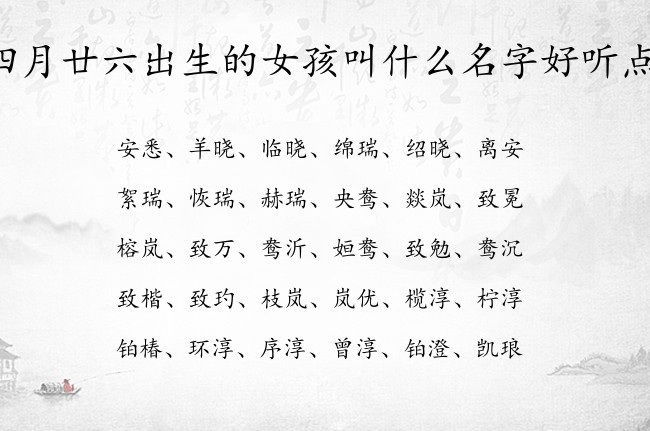 四月廿六出生的女孩叫什么名字好听点
安悉、羊晓、临晓、绵瑞、绍晓、离安
絮瑞、恢瑞、赫瑞、央鸯、燚岚、致冕
榕岚、致万、鸯沂、姮鸯、致勉、鸯沉
致楷、致玓、枝岚、岚优、榄淳、柠淳
铂椿、环淳、序淳、曾淳、铂澄、凯琅